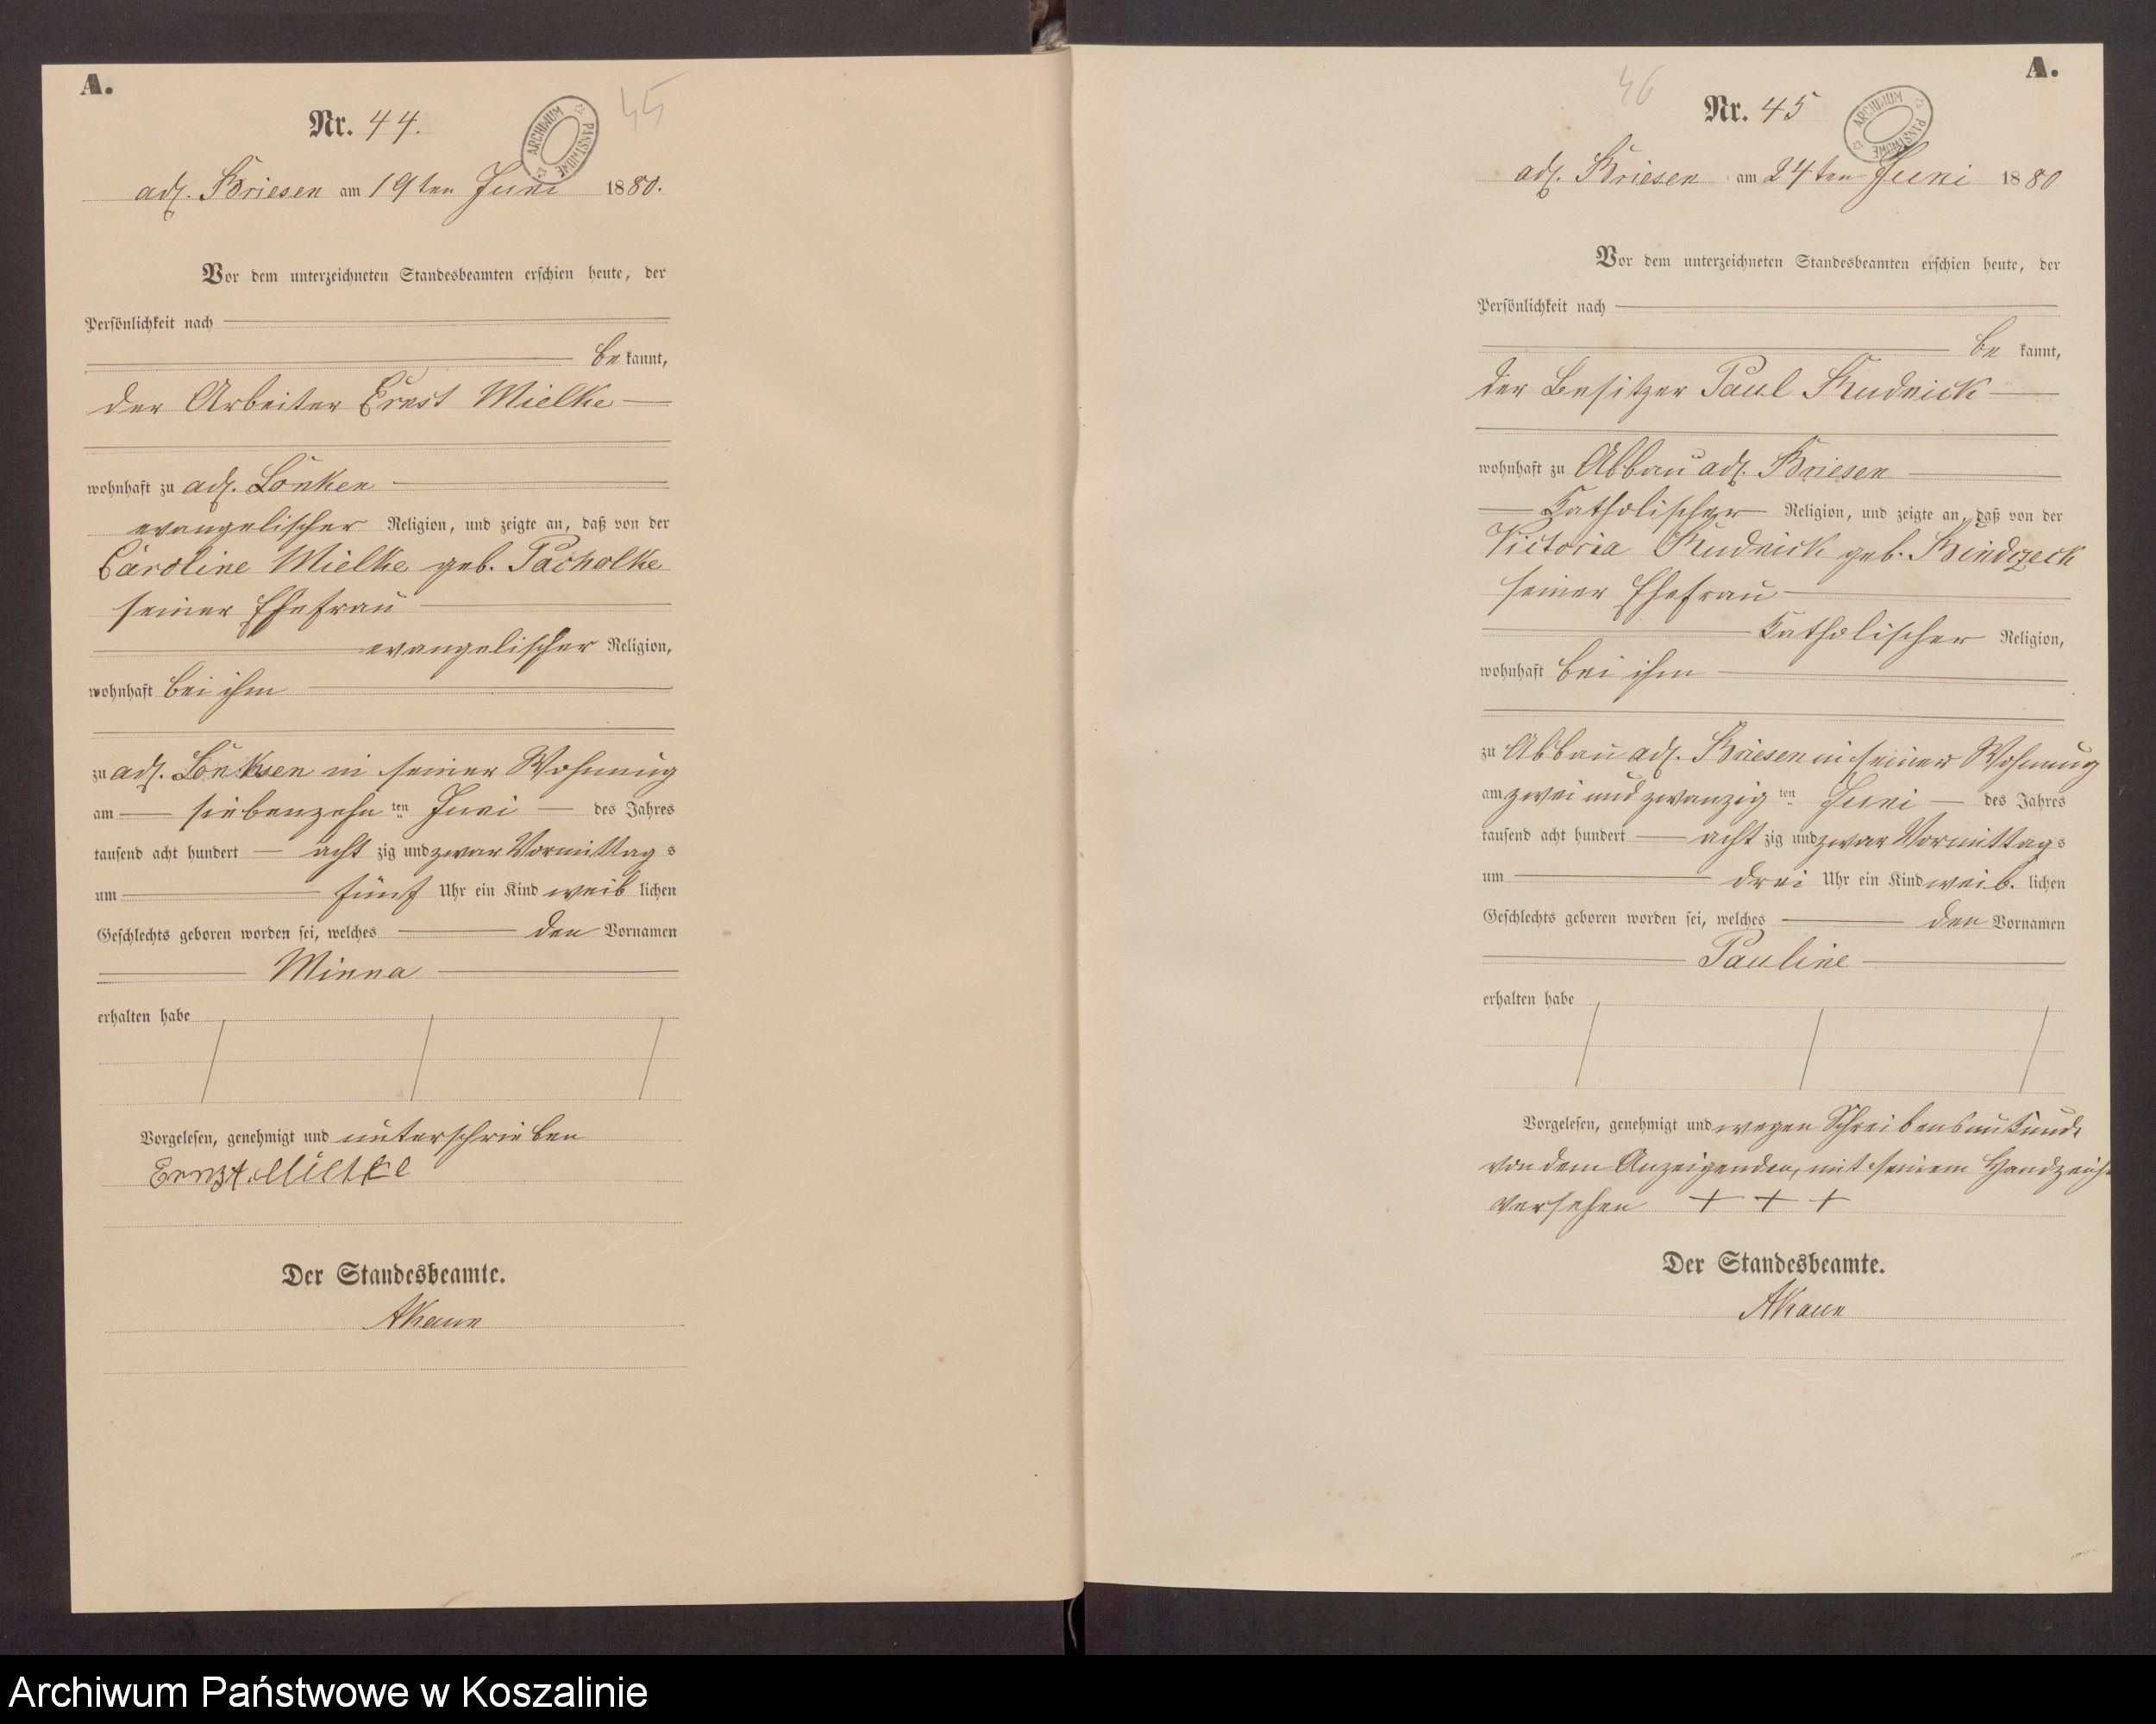 A.
Nr. 44.
45
ARCHIWUM PAŃSTWOWE
adl. Briesen am 19ten Juni 1880.
Vor dem unterzeichneten Standesbeamten erschien heute, der
Persönlichkeit nach
be kannt,
der Arbeiter Ernst Mielke
wohnhaft zu adl. Lonken
evangelischer Religion, und zeigte an, daß von der
Caroline Mielke geb. Pacholke
seiner Ehefrau
evangelischer Religion,
wohnhaft bei ihm
zu adl. Lonken in seiner Wohnung
am siebenzehn ten Juni des Jahres
tausend acht hundert acht zig und zwar Vormittag s
um fünf Uhr ein Kind weib lichen
Geschlechts geboren worden sei, welches den Vornamen
Minna
erhalten habe
Vorgelesen, genehmigt und unterschrieben
Ernst Mielke
Der Standesbeamte.
A.
Nr. 45
46
ARCHIWUM PAŃSTWOWE
adl. Briesen am 24ten Juni 1880
Vor dem unterzeichneten Standesbeamten erschien heute, der
Persönlichkeit nach
be kannt,
der Besitzer Paul Rudnick
wohnhaft zu Abbau adl. Briesen
Katholischer Religion, und zeigte an, daß von der
Victoria Rudnick geb.
seiner Ehefrau
Katholischer Religion,
wohnhaft bei ihm
zu Abbau adl. Briesen in seiner Wohnung
am zwei und zwanzig ten Juni des Jahres
tausend acht hundert acht zig und zwar Vormittag s
um drei Uhr ein Kind weib. lichen
Geschlechts geboren worden sei, welches den Vornamen
Pauline
erhalten habe
Vorgelesen, genehmigt und wegen Schreibensunkunde
von dem Anzeigenden, mit seinem Handzeichen
versehen + + +
Der Standesbeamte.
Archiwum Państwowe w Koszalinie